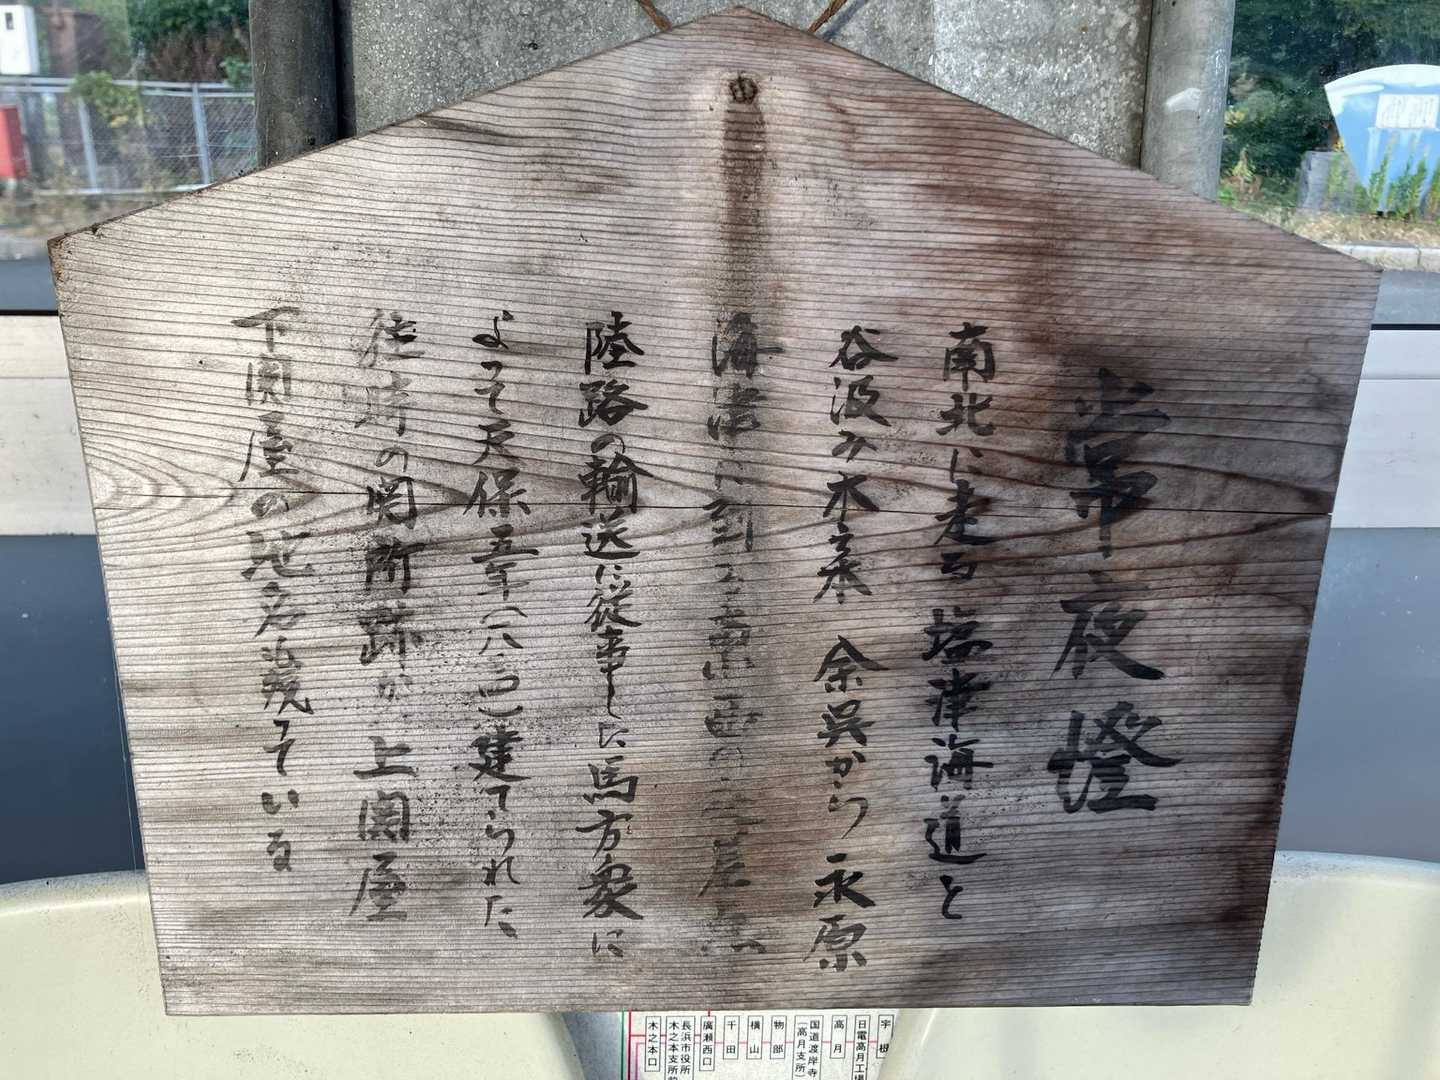 常夜燈
南北に走る塩津海道と
谷汲み木之本 余呉から 永原
海津に到る東西の
陸路の輸送に従事した馬方衆に
よって天保五年(一八三四)建てられた
往時の関所跡が 上関屋
下関屋の地名で残っている
木之本口
木之本支所
長浜市役所
廣瀬西口
千田
横山
物部
国道渡岸寺
(高月支所)
高月
日電高月工場
宇根